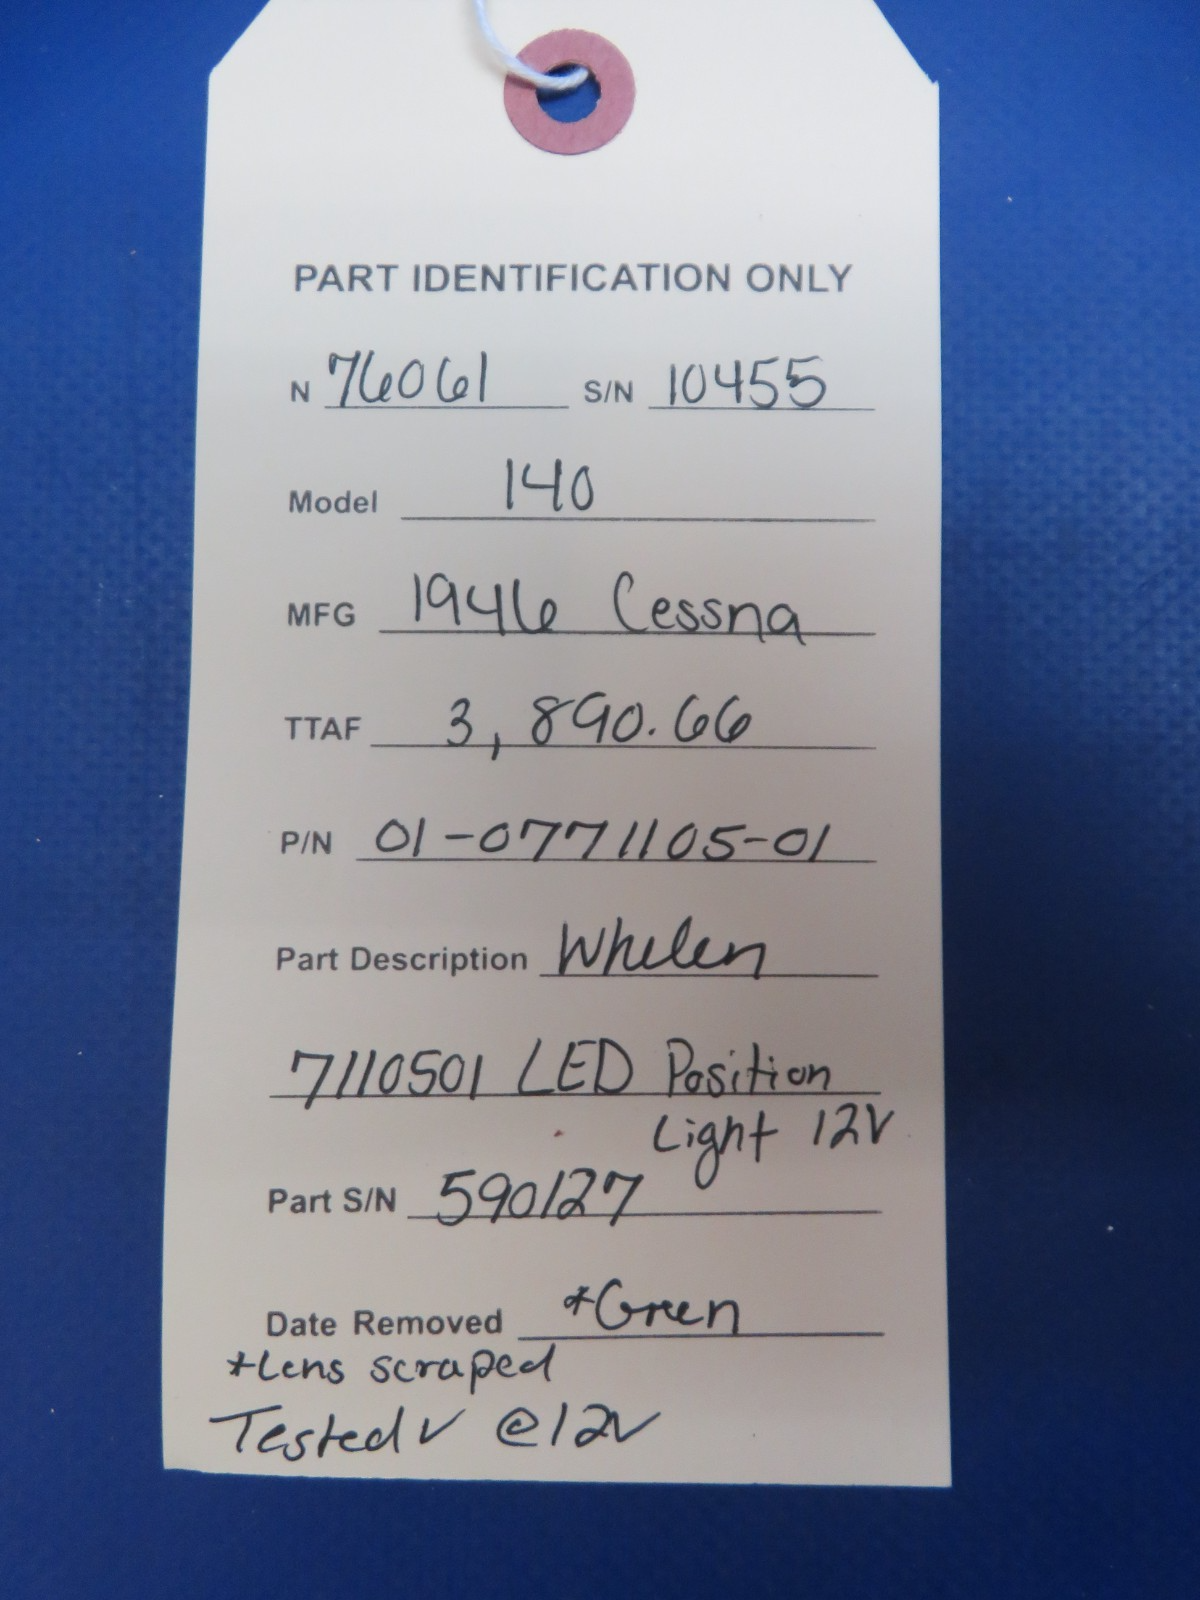 PART IDENTIFICATION ONLY
N 76061 S/N 10455
Model 140
MFG 1946 Cessna
TTAF 3,890.66
P/N 01-0771105-01
Part Description Whelen
7110501 LED Position
Light 12V
Part S/N 590127
Date Removed *Green
*Lens scraped
Tested ✓ @12V